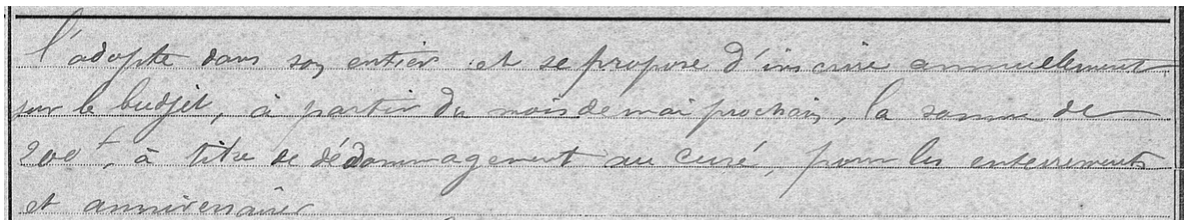 l'adopte dans son entier et se propose d'inscrire annuellement
sur le budjet, à partir du mois de mai prochain, la somme de
200 f, à titre de dédommagement au curé, pour les enterrements
et anniversaires